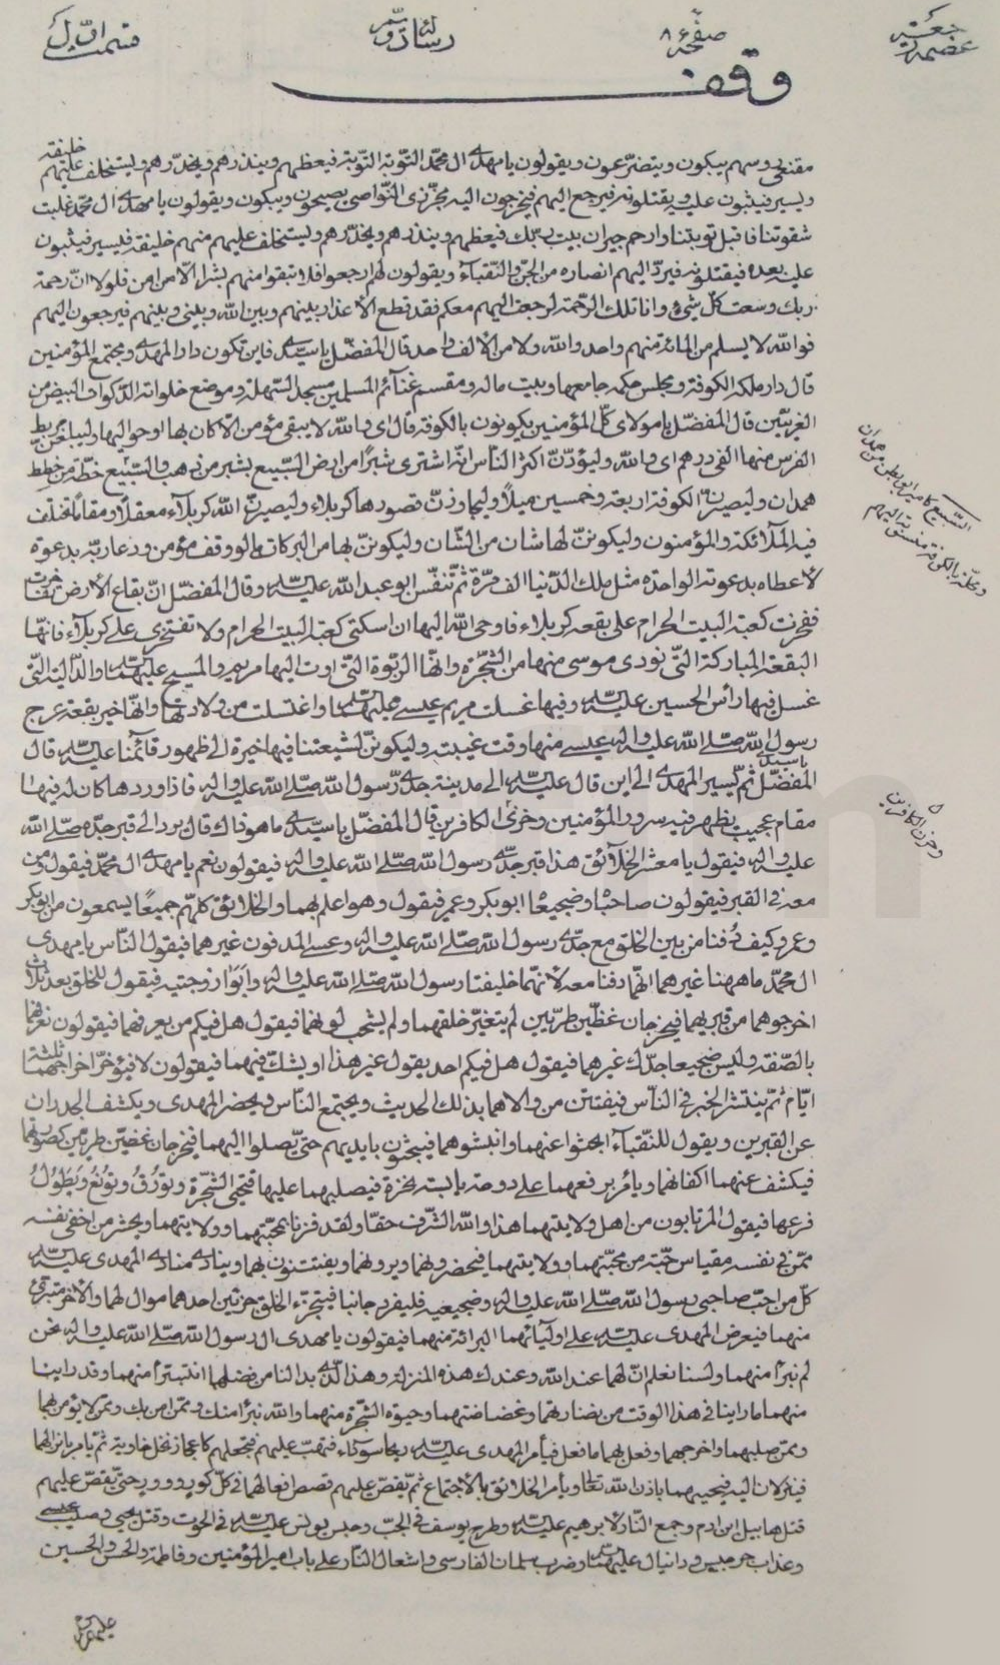 صفحه ۸۶
وقف
مقنعی رؤسهم یبکون ویتضرّعون ویقولون یا مهدی ال محمّد التّوبة التّوبة فیعظهم وینذرهم ویحذّرهم ویستخلف علیهم خلیفة
ویسیر فیثبون علیه ویقتلونه فیرجع الیهم فیخرجون الیه مجزّزی النّواصی یصیحون ویبکون ویقولون یا مهدی ال محمّد غلبت
شقوتنا فاقبل توبتنا وارحم جیران بیت ربّک فیعظهم وینذرهم ویحذّرهم ویستخلف علیهم منهم خلیفة فیسیر فیثبون
علیه بعده فیقتلونه فیردّ الیهم انصاره من الجنّ والنّقباء ویقولون لهم ارجعوا فلا تبقوا منهم بشرا الّا من امن فلولا انّ رحمة
ربک وسعت کلّ شیء وانا تلک الرّحمة لرجعت الیهم معکم فقد قطع الاعذار بینهم وبین الله وبینی وبینهم فیرجعون الیهم
فوالله لا یسلم من المائة منهم واحد والله ولا من الالف واحد قال المفضّل یا سیّدی فاین تکون دار المهدی ومجتمع المؤمنین
قال دار ملکه الکوفة ومجلس حکمه جامعها وبیت ماله ومقسم غنآئم المسلمین مسجد السّهلة وموضع خلواته الذّکوات البیض من
الغریّین قال المفضّل یا مولای کلّ المؤمنین یکونون بالکوفة قال ای والله لا یبقی مؤمن الّا کان بها او حوالیها ولیبلغنّ مربط
الفرس منها الفی درهم ای والله ولیودّنّ اکثر النّاس انّه اشتری شبرًا من ارض السّبیع بشبر من ذهب والسّبیع خطّة من خطط
همدان ولیصیرنّ الکوفة اربعة وخمسین میلاً ولیجاوزنّ قصورها کربلاء ولیصیرنّ الله کربلاء معقلاً ومقامًا تختلف
فیه الملآئکة والمؤمنون ولیکوننّ لها شان من الشّان ولیکوننّ بها من البرکات ما لو وقف مؤمن ودعا ربّه بدعوة
لاعطاه بدعوته الواحدة مثل ملک الدّنیا الف مرّة ثمّ تنفّس ابو عبد الله علیه السّلام وقال یا مفضّل انّ بقاع الارض تفاخرت
ففخرت کعبة البیت الحرام علی بقعة کربلاء فاوحی الله الیها ان اسکتی کعبة البیت الحرام ولا تفتخری علی کربلاء فانّها
البقعة المبارکة التّی نودی موسی منها من الشّجرة وانّها الرّبوة التّی اوت الیها مریم والمسیح علیهما السّلام والدّالیة التّی
غسل فیها راس الحسین علیه السّلام وفیها غسلت مریم عیسی علیهما السّلام واغتسلت من ولادتها وانّها خیر بقعة عرج
رسول الله صلّی الله علیه واله منها وقت غیبته ولیکوننّ لشیعتنا فیها خیرة الی ظهور قآئمنا علیه السّلام قال
المفضّل یا سیّدی ثمّ یسیر المهدی الی این قال علیه السّلام الی مدینة جدّی رسول الله صلّی الله علیه واله فاذا وردها کان له فیها
مقام عجیب یظهر فیه سرور المؤمنین وخزی الکافرین قال المفضّل یا سیّدی ما هو ذاک قال یرد الی قبر جدّه صلّی الله
علیه واله فیقول یا معشر الخلآئق هذا قبر جدّی رسول الله صلّی الله علیه واله فیقولون نعم یا مهدی ال محمّد فیقول ومن
معه فی القبر فیقولون صاحباه وضجیعاه ابو بکر وعمر فیقول وهو اعلم بهما والخلائق کلّهم جمیعًا یسمعون من ابو بکر
وعمر وکیف دُفنا من بین الخلق مع جدّی رسول الله صلّی الله علیه واله وعسی المدفون غیرهما فیقول النّاس یا مهدی
ال محمّد ما ههنا غیرهما انّهما دفنا معه لانّهما خلیفتا رسول الله صلّی الله علیه واله وابَوَا زوجتیه فیقول للخلق بعد ثلاث
اخرجوهما من قبریهما فیخرجان غضّین طریّین لم یتغیّر خلقهما ولم یشحب لونهما فیقول هل فیکم من یعرفهما فیقولون نعرفهما
بالصّفة ولیس ضجیعا جدّک غیرهما فیقول هل فیکم احد یقول غیر هذا او یشکّ فیهما فیقولون لا فیؤخّر اخراجهما ثلثة
ایّام ثمّ ینتشر الخبر فی النّاس فیفتتن من والاهما بذلک الحدیث ویجتمع النّاس ویحضر المهدی ویکشف الجدران
عن القبرین ویقول للنّقبآء ابحثوا عنهما وانبشوهما فیبحثون بایدیهم حتّی یصلوا الیهما فیخرجان غضّین طریّین کصورتهما
فیکشف عنهما اکفانهما ویأمر برفعهما علی دوحة یابسة نخرة فیصلبهما علیها فتحیی الشّجرة وتورُقُ وتونُعُ ویَطوُلُ
فرعها فیقول المرتابون من اهل ولایتهما هذا والله الشّرف حقّا ولقد فزنا بمحبّتهما وولایتهما ویحشر من اخفی نفسه
ممّن فی نفسه مقیاس حبّة من محبّتهما وولایتهما فیحضرونهما ویرونهما ویفتتنون بهما وینادی منادی المهدی علیه السّلام
کلّ من احبّ صاحبی رسول الله صلّی الله علیه واله وضجیعیه فلیفرد جانبا فیتجزّء الخلق جزئین احدهما موال لهما والاخر متبرّئ
منهما فیعرض المهدی علیه السّلام علی اولیآئهما البرائة منهما فیقولون یا مهدی ال رسول الله صلّی الله علیه واله نحن
لم نبرأ منهما ولسنا نعلم انّ لهما عند الله وعندک هذه المنزلة وهذا الّذی بدا لنا من فضلهما انتبرّأ منهما وقد راینا
منهما ما راینا فی هذا الوقت من نضارتهما وغضاضتهما وحیوة الشّجرة منهما والله نبرّأ منک وممّن امن بک وممّن لا یؤمن بهما
وممّن صلبهما واخرجهما وفعل بهما ما فعل فیأمر المهدی علیه السّلام ریحا سودآء فتهبّ علیهم فتجعلهم کاعجاز نخل خاویة ثمّ یامر بانزالهما
فینزلان الیه فیحییهما باذن الله تعالی ویأمر الخلائق بالاجتماع ثمّ یقصّ علیهم قصص افعالهما فی کلّ کور ودور حتّی یقصّ علیهم
قتل هابیل ابن ادم وجمع النّار لابرهیم علیه السّلام وطرح یوسف فی الجبّ وحبس یونس علیه السّلام فی الحوت وقتل یحیی وصلب عیسی
وعذاب جرجیس ودانیال علیهما السّلام وضرب سلمان الفارسی واشعال النّار علی باب امیر المؤمنین وفاطمة والحسن والحسین
السّبیع کامیر ابو بطن من همدان
ومحلّة بالکوفة منسوبة الیهم
وحزن الکافرین
علیهم